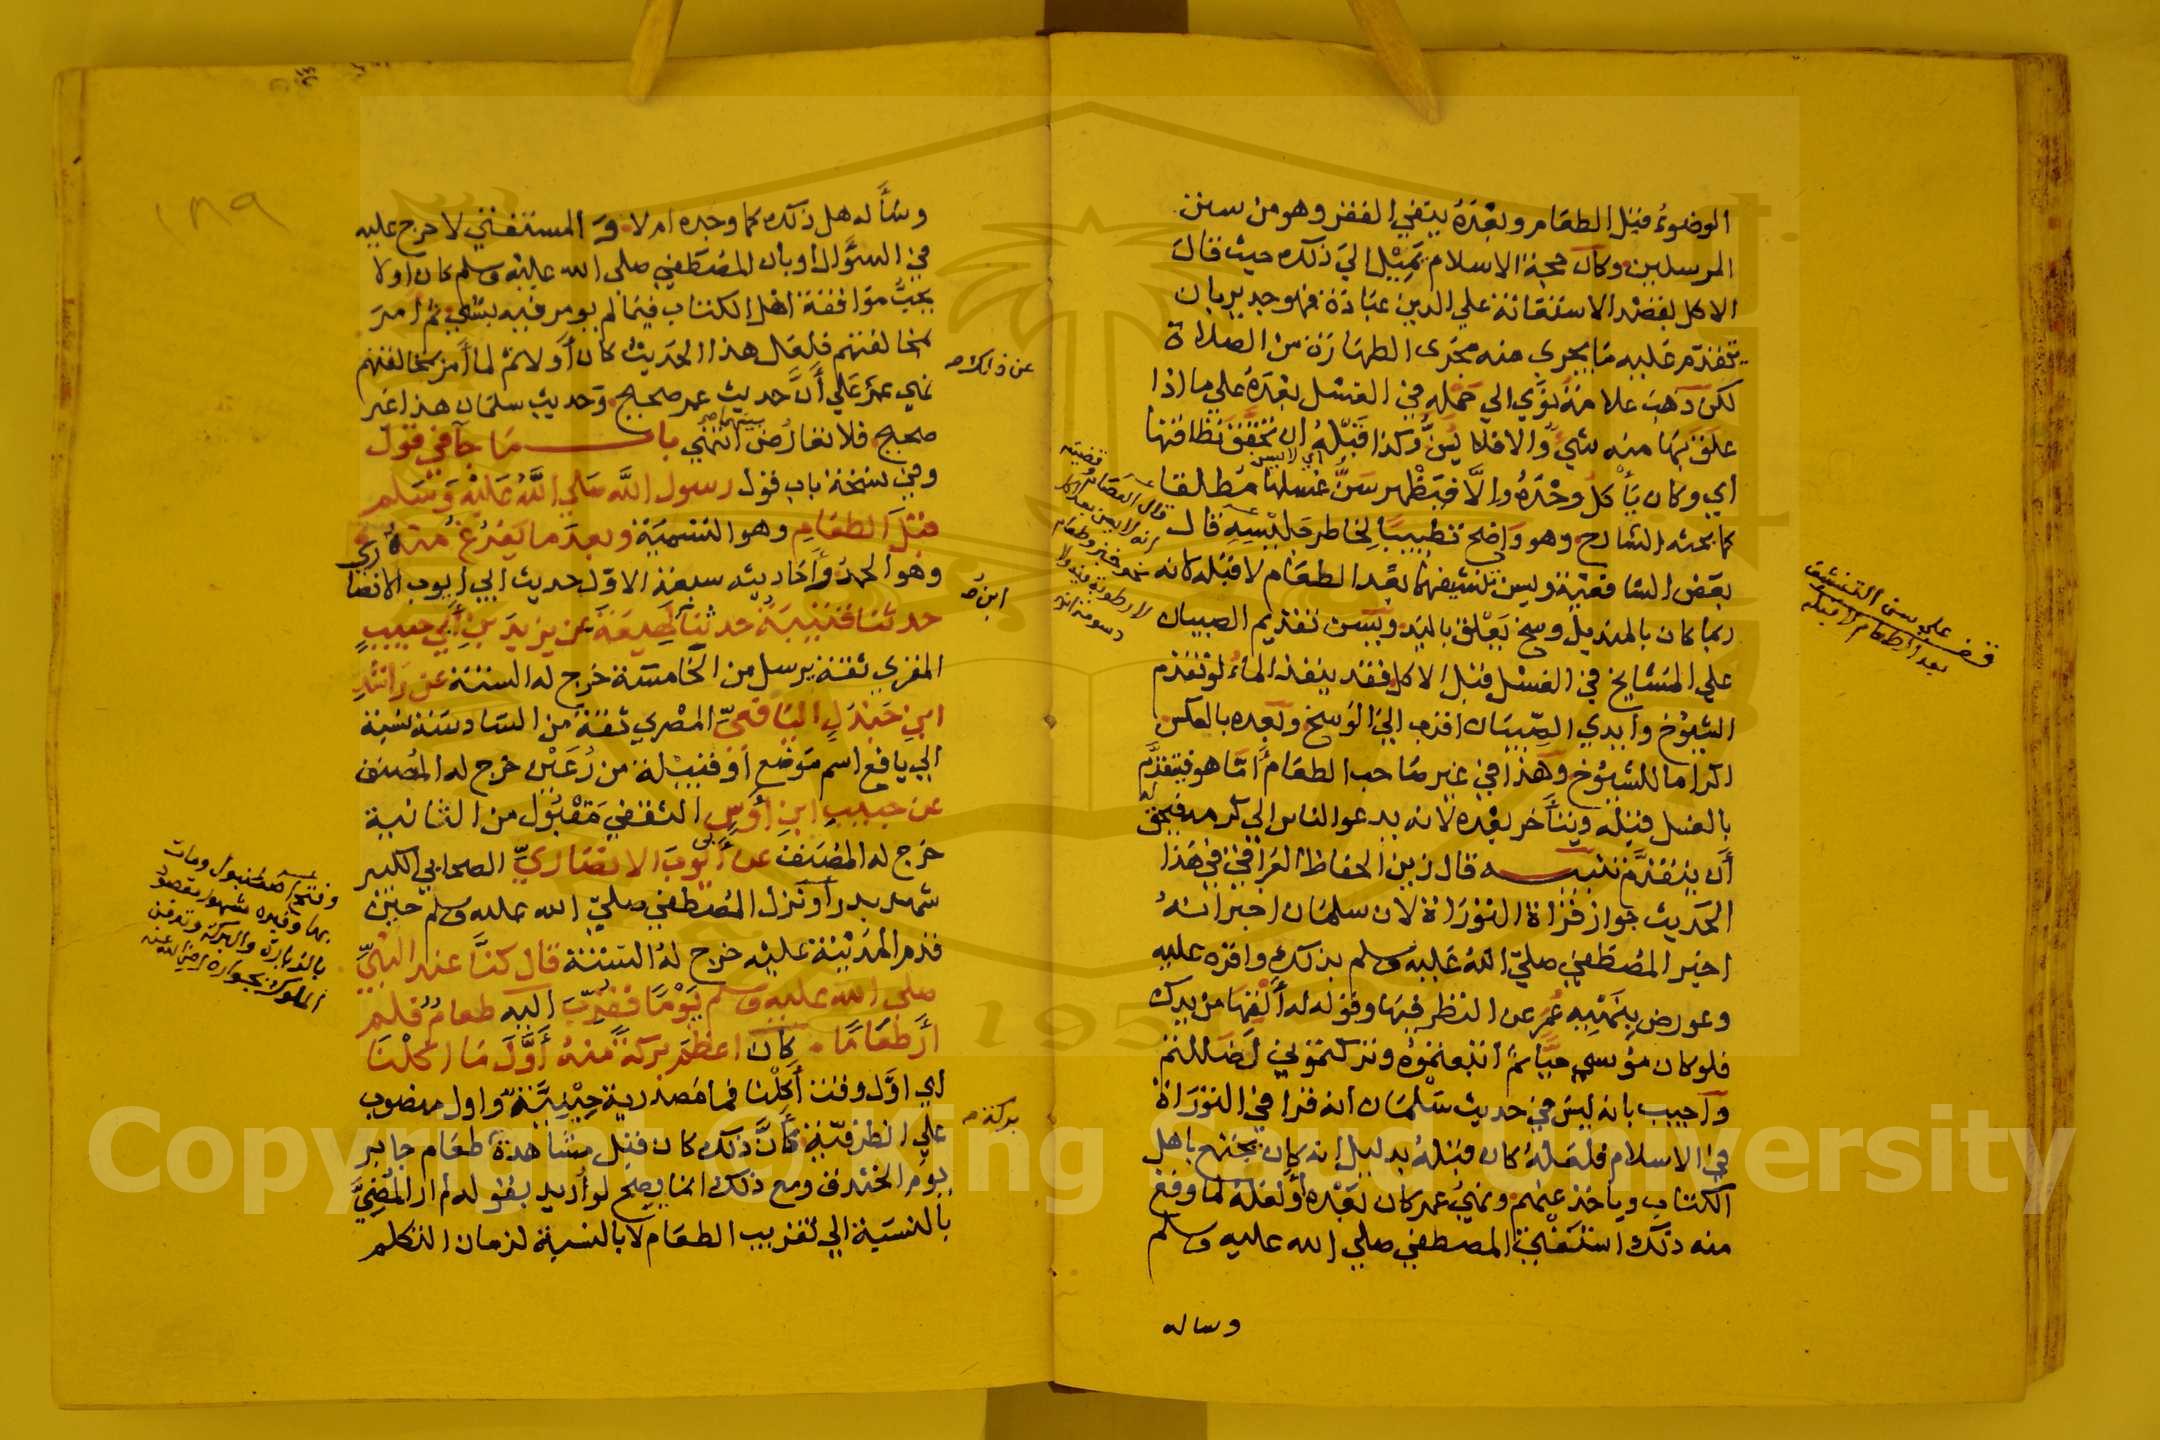 الوضوء قبل الطعام وبعده ينفي الفقر وهو من سنن
المرسلين وكان حجة الاسلام يميل الي ذلك حيث قال
الاكل بقصد الاستعانة علي الدين عبادة فهو جدير بان
يتقدم عليه ما يجري منه مجرى الطهارة من الصلاة
لكن ذهب علامة نووي الي حمله في الغسل بعده علي ما اذا
علق بها منه شيء والا فلا يسن وكذا قبله ان تحقق نظافتها
اي وكان يأكل وحده والا فيظهر سن غسلها مطلقا
كما بحثه الشارح وهو واضح تطييبا لخاطر جليسه قال
بعض الشافعية وليس تنشيفهما بعد الطعام لا قبله لانه
ربما كان بالمنديل وسخ يعلق باليد ويسن تقديم الصبيان
علي المشايخ في الغسل قبل الاكل فقد ينفد الماء لو تقدم
الشيوخ وايدي الصبيان اقرب الي الوسخ وبعده بالعكس
اكراما للشيوخ وهذا في غير صاحب الطعام اما هو فيتقدم
بالغسل قبله ويتأخر بعده لانه يدعو الناس الي كرمه فيحق
أن يتقدم تنبيه قال زين الحفاظ العراقي في هذا
الحديث جواز قراة التوراة لان سلمان اخبر انه
اخبر المصطفي صلي الله عليه وسلم بذلك واقره عليه
وعورض بنهيه عمر عن النظر فيها وقوله له ألقها من يدك
فلو كان موسي حيا ثم اتبعتموه وتركتموني لضللتم
وأجيب بانه ليس في حديث سلمان انه قرا في التوراة
في الاسلام فلعله كان قبله بدليل انه كان يجتمع باهل
الكتاب وياخذ عنهم ونهي عمر كان بعده أو لعله لما وقع
منه ذلك استكفي المصطفي صلي الله عليه وسلم
وساله
قال العصام
علي سن التنشيف
بعد الطعام لا قبله
وسأله هل ذلك كما وجده ام لا و المستفتي لا حرج عليه
في السؤال او بان المصطفي صلي الله عليه وسلم كان أولا
يحب موافقة اهل الكتاب فيما لم يومر فيه بشي ثم أمر
بمخالفتهم فلعل هذا الحديث كان أولا ثم لما أمر بمخالفتهم
نهي عمر علي أن حديث عمر صحيح وحديث سلمان هذا غير
صحيح فلا تعارض بينهما انتهي باب ما جآ في قول
وفي نسخة باب قول رسول الله صلي الله عليه وسلم
قبل الطعام وهو التسمية وبعد ما يفرغ منه
وهو الحمد وأحاديثه سبعة الاول حديث ابي ايوب الانصاري
حدثنا قتيبة حدثنا لهيعة عن يزيد بن أبي حبيب
المقري ثقة يرسل من الخامسة خرج له الستة عن راشد
ابن جندل اليافعي المصري ثقة من السادسة نسبة
الي يافع اسم موضع او قبيلة من رعين خرج له المصنف
عن حبيب ابن أوس الثقفي مقبول من الثانية
خرج له المصنف عن أبي أيوب الانصاري الصحابي الكبير
شهد بدرا ونزل المصطفي صلي الله عليه وسلم حين
قدم المدينة عليه خرج له الستة قال كنا عند النبي
صلي الله عليه وسلم يوما فقرب اليه طعام فلم
أر طعاما كان اعظم بركة منه أول ما اكلنا
اي اول وقت أكلنا فما مصدرية حينية واول منصوب
علي الظرفية كأن ذلك كان قبل مشاهدة طعام جابر
يوم الخندق ومع ذلك انما يصح لو أريد بقوله لم ار المضي
بالنسبة الي تقريب الطعام لا بالنسبة لزمان التكلم
عن ذلك صح
ابن صح
بركة صح
وفتح اصطنبول ومات
بها وقبره مشهور مقصود
بالزيارة والبركة وتدفن
الملوك بجواره رضي الله عنه
١٨٩
1957
Copyright © King Saud University